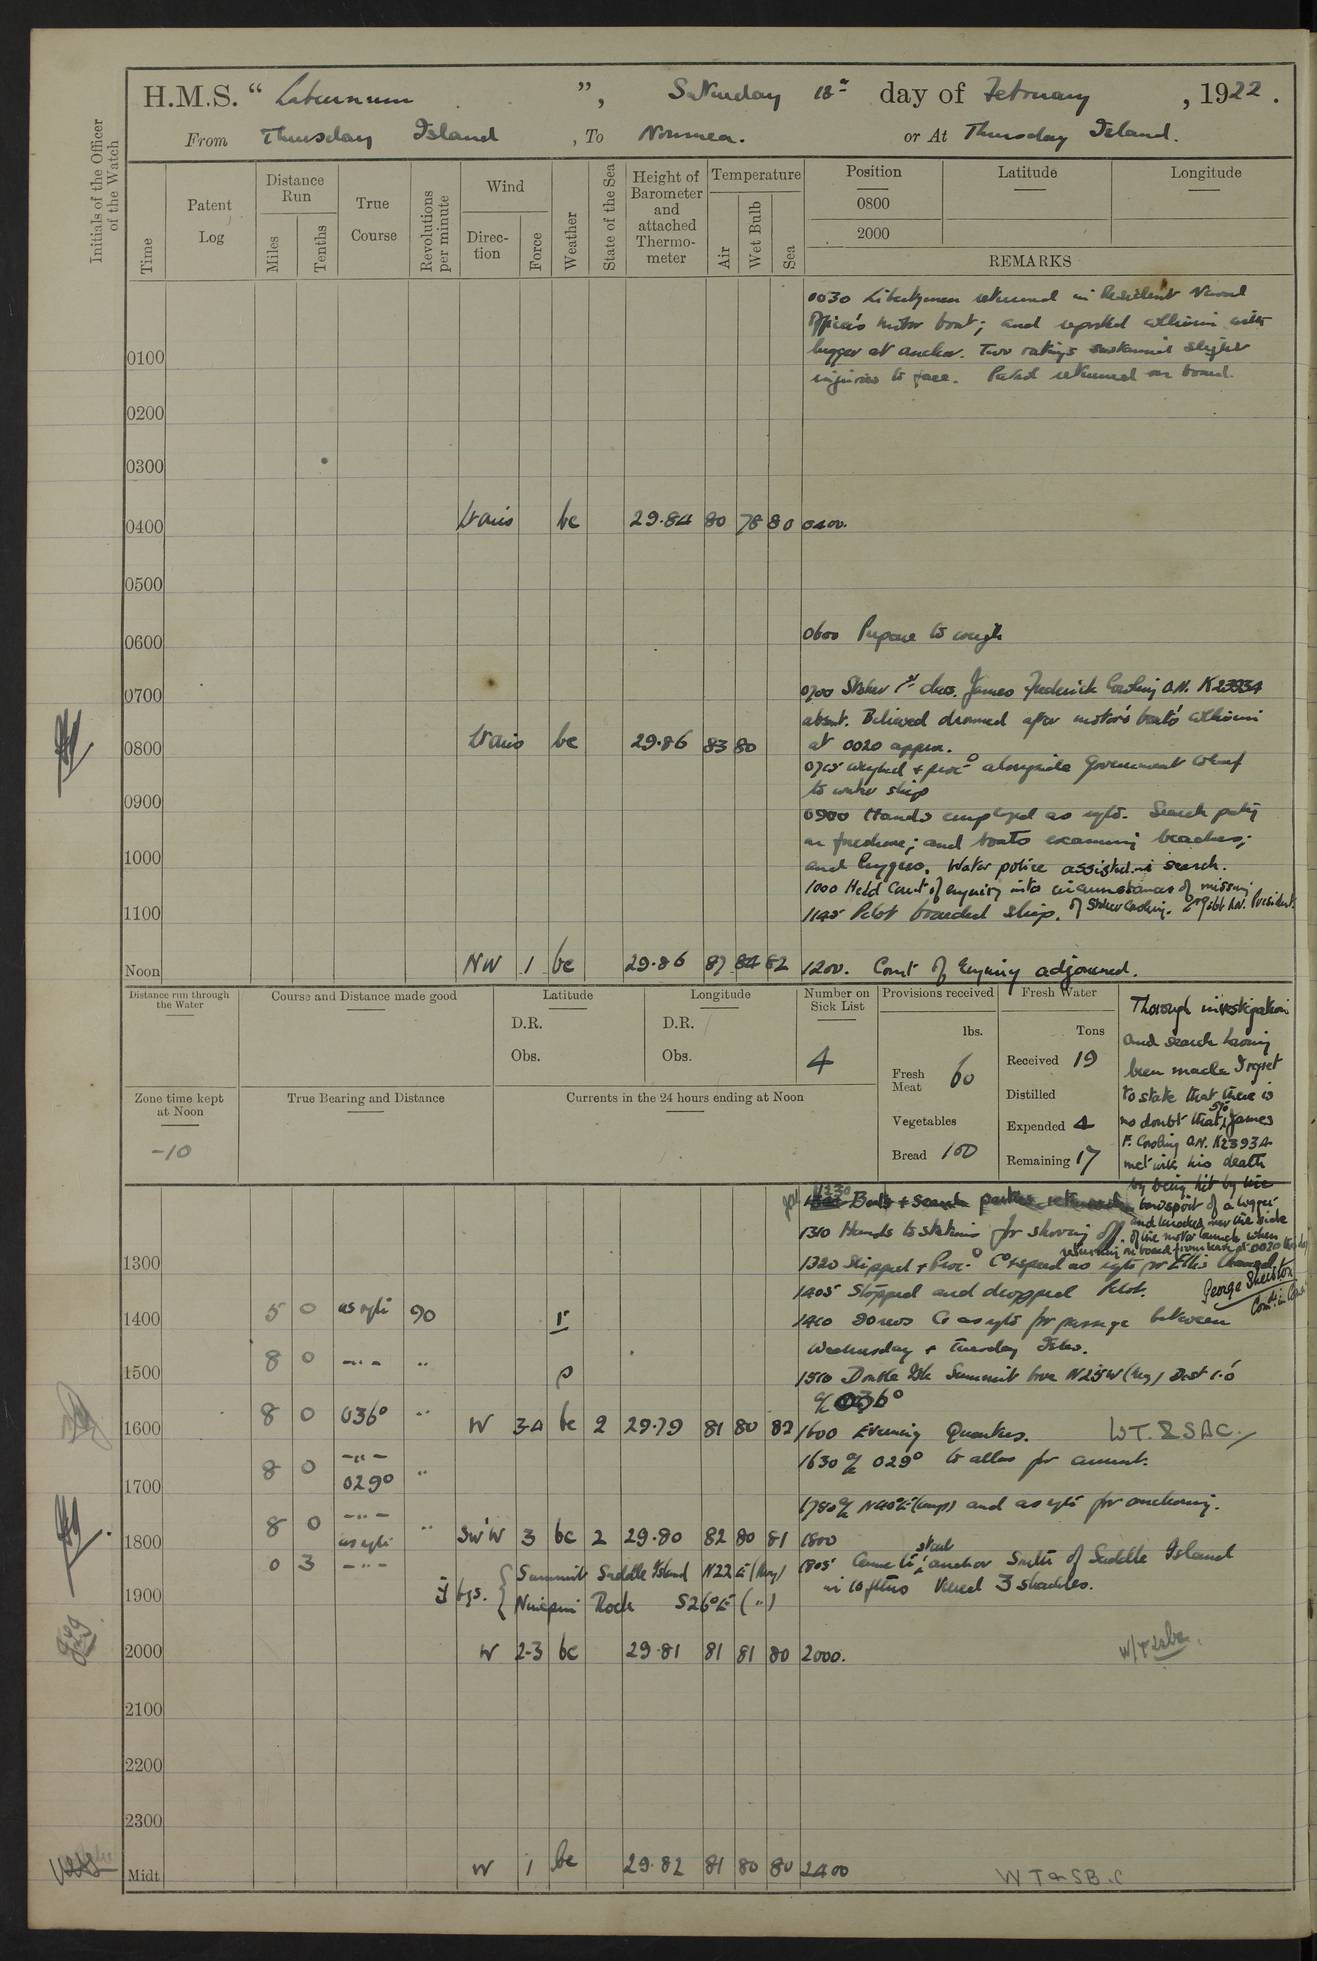 H.M.S. " Laburnum ", Saturday 18th day of February, 1922.
From Thursday Island, To Noumea. or At Thursday Island.
Initials of the Officer of the Watch
Time
Patent Log
Distance Run
Miles
Tenths
True Course
Revolutions per minute
Wind
Direc-tion
Force
Weather
State of the Sea
Height of Barometer and attached Thermo-meter
Temperature
Air
Wet Bulb
Sea
Position
0800
2000
Latitude
Longitude
REMARKS
0030 Libertymen returned in Resident Naval
Officer's motor boat; and reported collision with
lugger at anchor. Two ratings sustained slight
0100
injuries to face. Patrol returned on board.
0200
0300
0400 Vairs bc 29.84 80 78 80 0400.
0500
0600 Prepare to weigh
0600
0700 Stoker 1st class. James Frederick Cosling O.N. K23934
0700
absent. Believed drowned after motor boat's collision
0800 Vairs bc 29.86 83 80 at 0020 approx.
0715 weighed & procd alongside Government Wharf
to water ship
0900
0900 Hands employed as reqte. Search party
on foreshore; and boats examining beaches;
1000
and luggers. Water police assisted in search.
1000 Held Court of enquiry into circumstances of missing
of Stoker Cosling. President.
1100
1145 Pilot boarded ship.
Noon NW 1 bc 29.86 87 84 82 1200. Court of Enquiry adjourned.
Distance run through the Water
Course and Distance made good
Latitude
D.R.
Obs.
Longitude
D.R.
Obs.
Number on Sick List
4
Provisions received
lbs.
Fresh Meat 60
Vegetables
Bread 100
Fresh Water
Tons
Received 19
Distilled
Expended 4
Remaining 17
Zone time kept at Noon
-10
True Bearing and Distance
Currents in the 24 hours ending at Noon
Thorough investigation
and search having
been made I regret
to state that there is
no doubt that Sto James
F. Cosling O.N. K23934
met with his death
by being hit by the
bowsprit of a lugger
and knocked over the side
of the motor launch when
returning on board from leave at 0020
George Sherston
1230 Boats & Search parties returned
1310 Hands to stations for shoving off.
1300
1320 Slipped & Proc. Co & speed as reqte for Ellis Channel
1405 Stopped and dropped Pilot.
1400 5 0 as reqte 90 r
1410 90 revs Co as reqte for passage between
Wednesday & Tuesday Isles.
1500 8 0 -"- " p
1510 Double Isle Summit bore N25W (Mag) Dist 1.0
a/c 036°
1600 8 0 036° " W 3-4 bc 2 29.79 81 80 82 1600 Evening Quarters. W.T. & S.B.C.
-"-
1630 a/c 029° to allow for current.
1700 8 0 029° "
1730 a/c N40°E (comp) and as reqte for anchoring.
-"-
1800 8 0 as reqte " SW'W 3 bc 2 29.80 82 80 81 1800
0 3 -"-
1805 Came to stard anchor South of Saddle Island
in 10 fthms Veered 3 shackles.
1900
bgs. { Summit Saddle Island N22°E (Mag)
Ninepin Rock S26°E (")
2000 W 2-3 bc 29.81 81 81 80 2000.
2100
2200
2300
Midt W 1 bc 29.82 81 80 80 2400 W T & S B. C